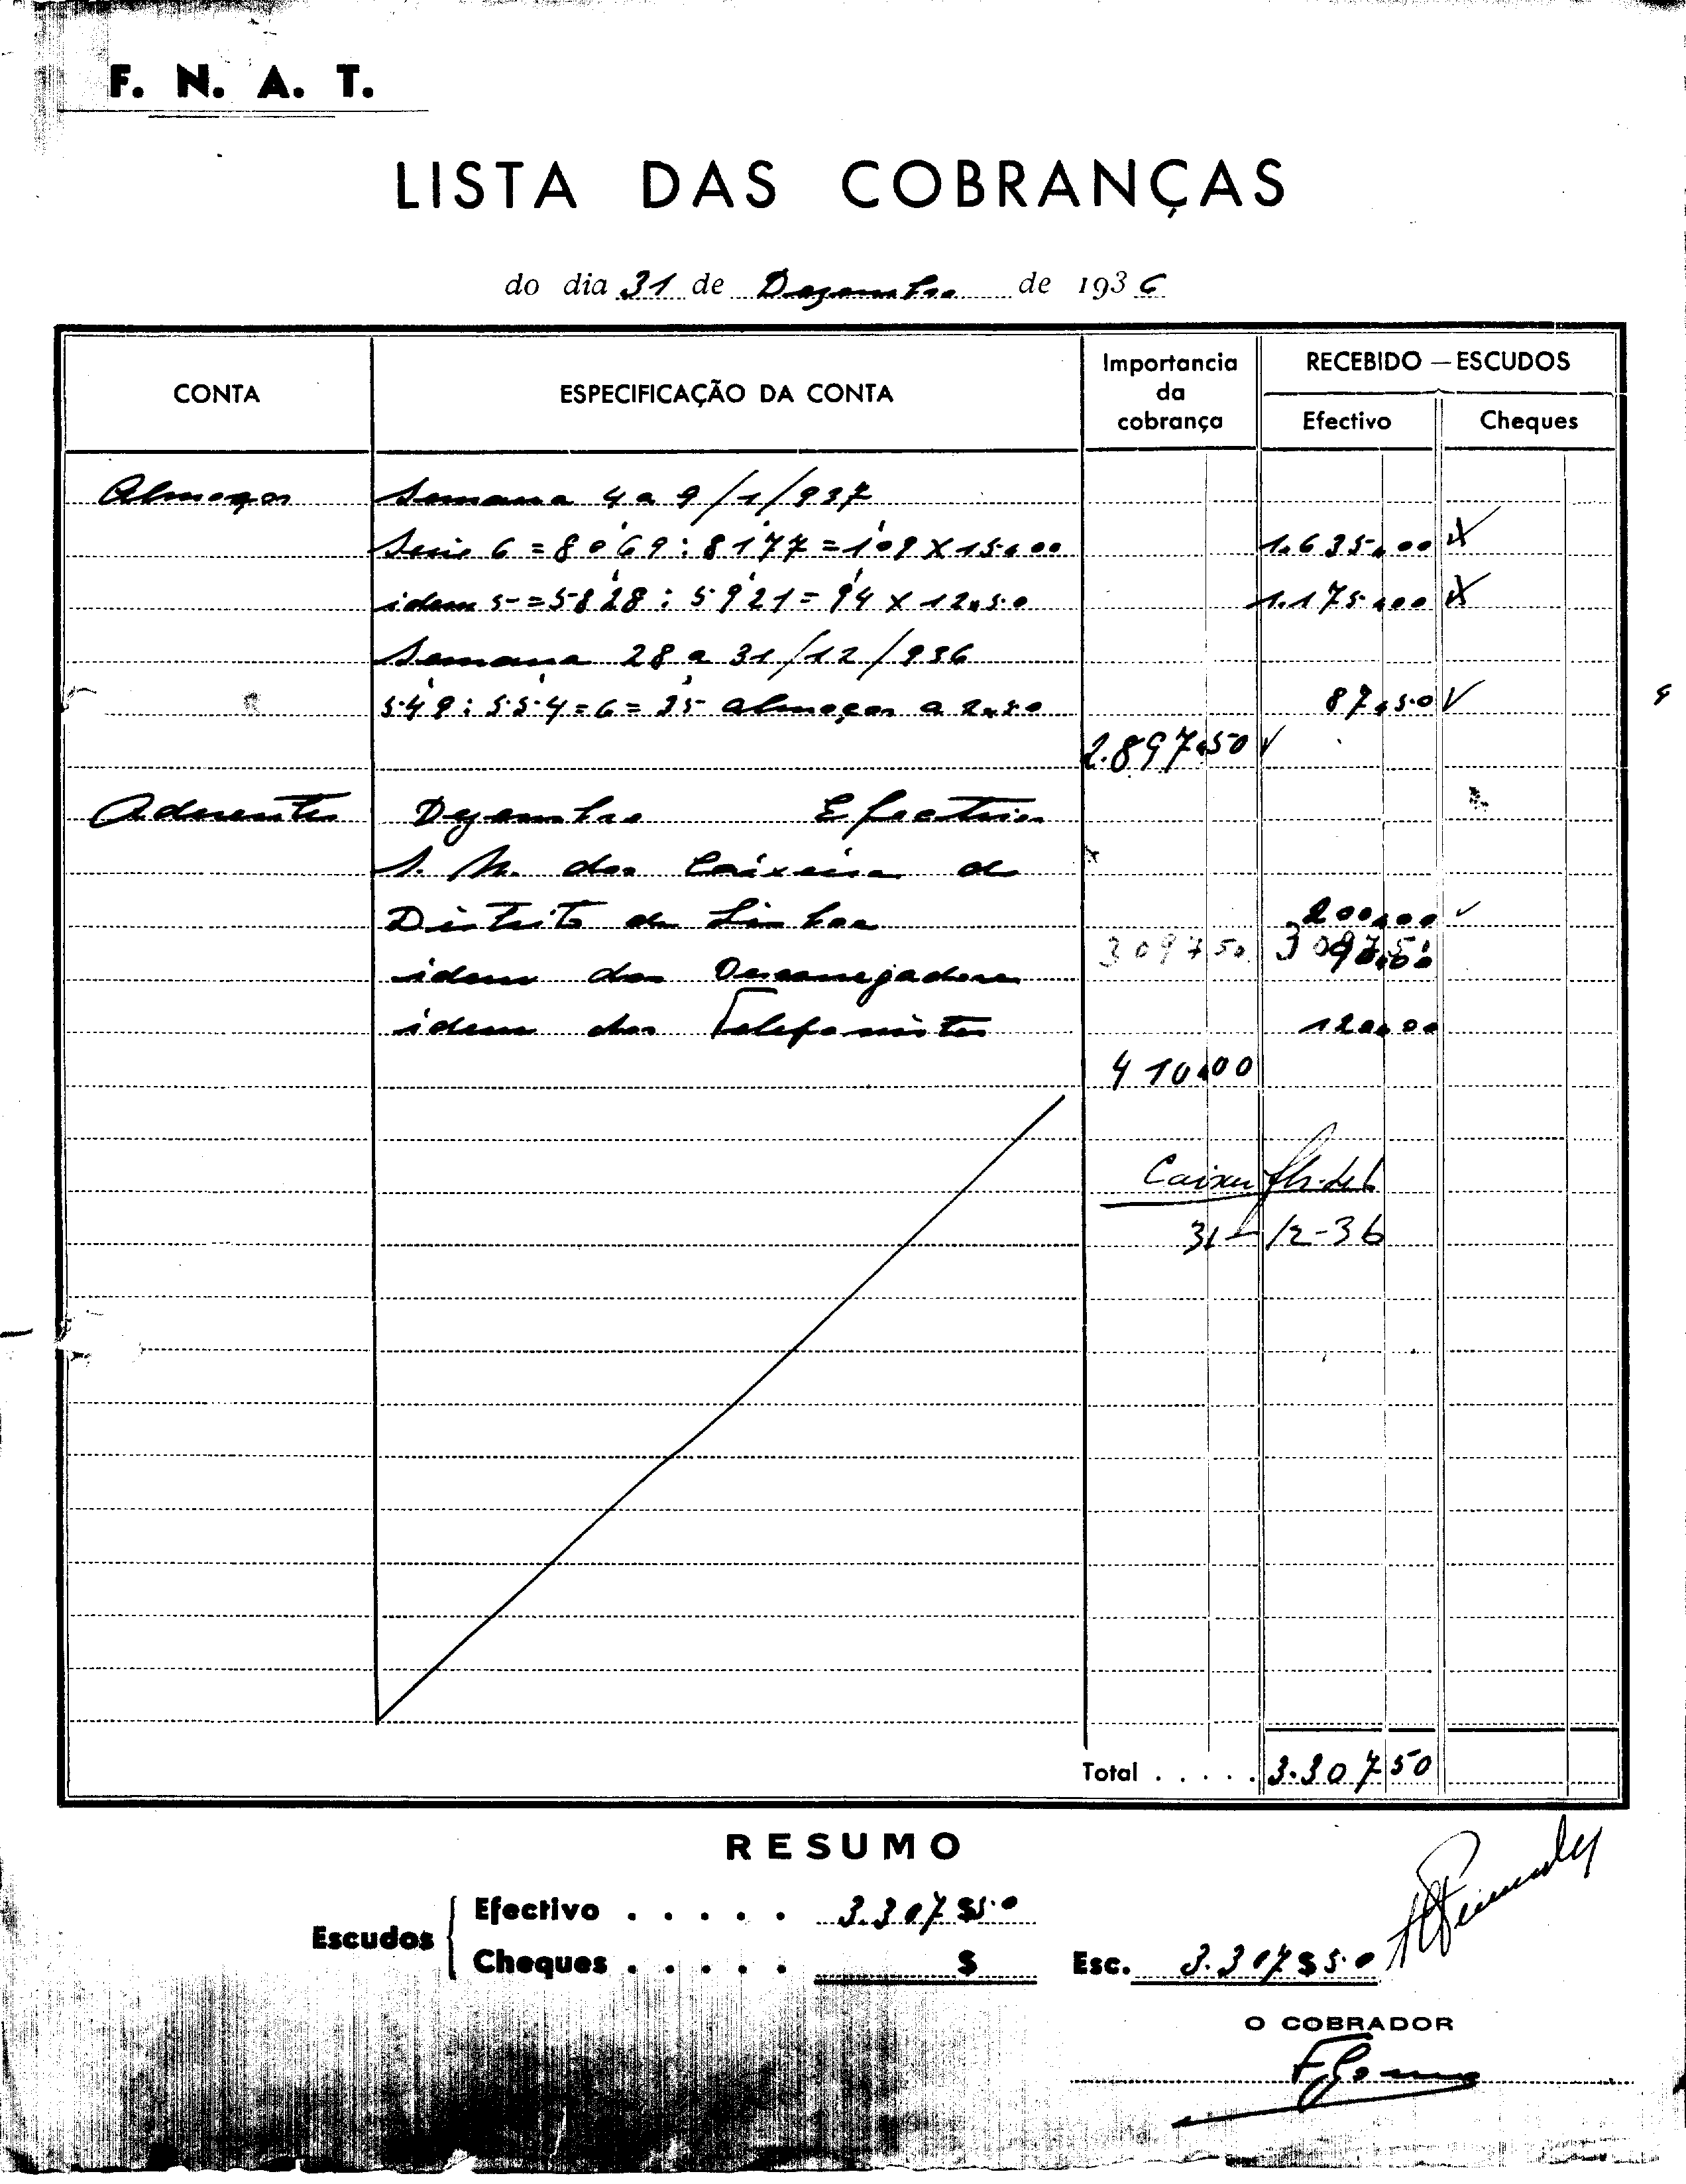 F. N. A. T.
LISTA DAS COBRANÇAS
do dia 31 de Dezembro de 1936
CONTA
ESPECIFICAÇÃO DA CONTA
Importancia da cobrança
RECEBIDO — ESCUDOS
Efectivo
Cheques
Almoços Semana 4 a 9/1/937
Serie 6 = 8069 : 8177 = 109 X 15$00 1.635$00
idem 5 = 5828 : 5921 = 94 X 12$50 1.175$00
Semana 28 a 31/12/936
549 : 554 = 6 = 35 almoços a 2$50 87$50
2.897$50
Aderentes Dezembro Efectivos
S. N. dos Caixeiros do
Distrito de Lisboa 200$00
3097 50 3097 50
idem dos Descarregadores 90$00
idem dos Telefonistas 120$00
410$00
Caixa
31-12-36
Total . . . . . 3.307 50
RESUMO
Escudos
Efectivo . . . . . 3.307$50
Cheques . . . . . $
Esc. 3.307$50
O COBRADOR